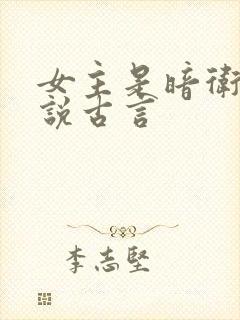 女主是暗衛
說古言
李志堅